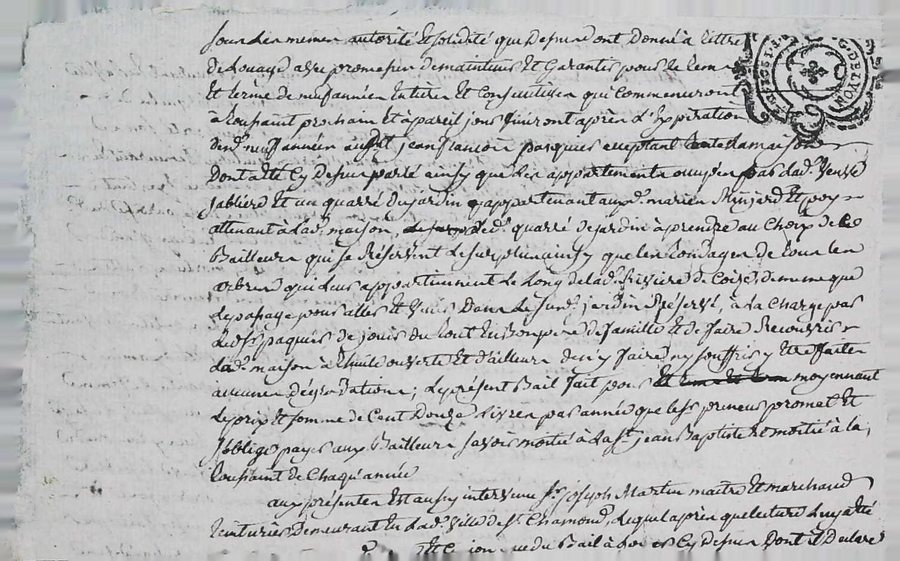 sous les memes autorité et solidité que dessus ont donné à tittre
de louage avec promesse de maintenir et garantir pour le tems
et terme de neuf années entieres et consecutives qui commenceront
à Toussaint prochain et à pareil jour finiront après l'expiration
desd. neuf années aud. Sr jean françois pasquier acceptant la maison
dont a été cy dessus parlé ainsy que les appartements occupés par lad. Veuve
jabliere et un quarré du jardin appartenant auxd. mariés Minjard et
attenant à lad. maison, led. quarré de jardin à prendre au choix de
Bailleurs qui se réservent le surplus ainsy que les Eondages de tous les
arbres qui leurs appartiennent le long de lad. Rivière de Coize, de meme que
le passage pour aller et venir dans le susd. jardin Réservé, à la charge par
led. Sr paquier de jouir du tout en bon pere de famille et de faire Recouvrir
lad. maison à thuile ouverte et d'ailleurs de n'y faire ny souffrir y être faites
aucunes dégradations; le présent Bail fait pour moyennant
le prix et somme de Cent Douze Livres par année que led. Sr preneur promet et
s'oblige payer aux Bailleurs savoir moitié à la St. jean Baptiste et moitié à la
Toussaint de Chaque année
aux présentes est aussy intervenu Sr. joseph Martin maitre et marchand
teinturier demeurant en lad. Ville de St. Chamond, lequel après que lecture luy a été
du Bail à loyer cy dessus dont il declare
G. DE LYON